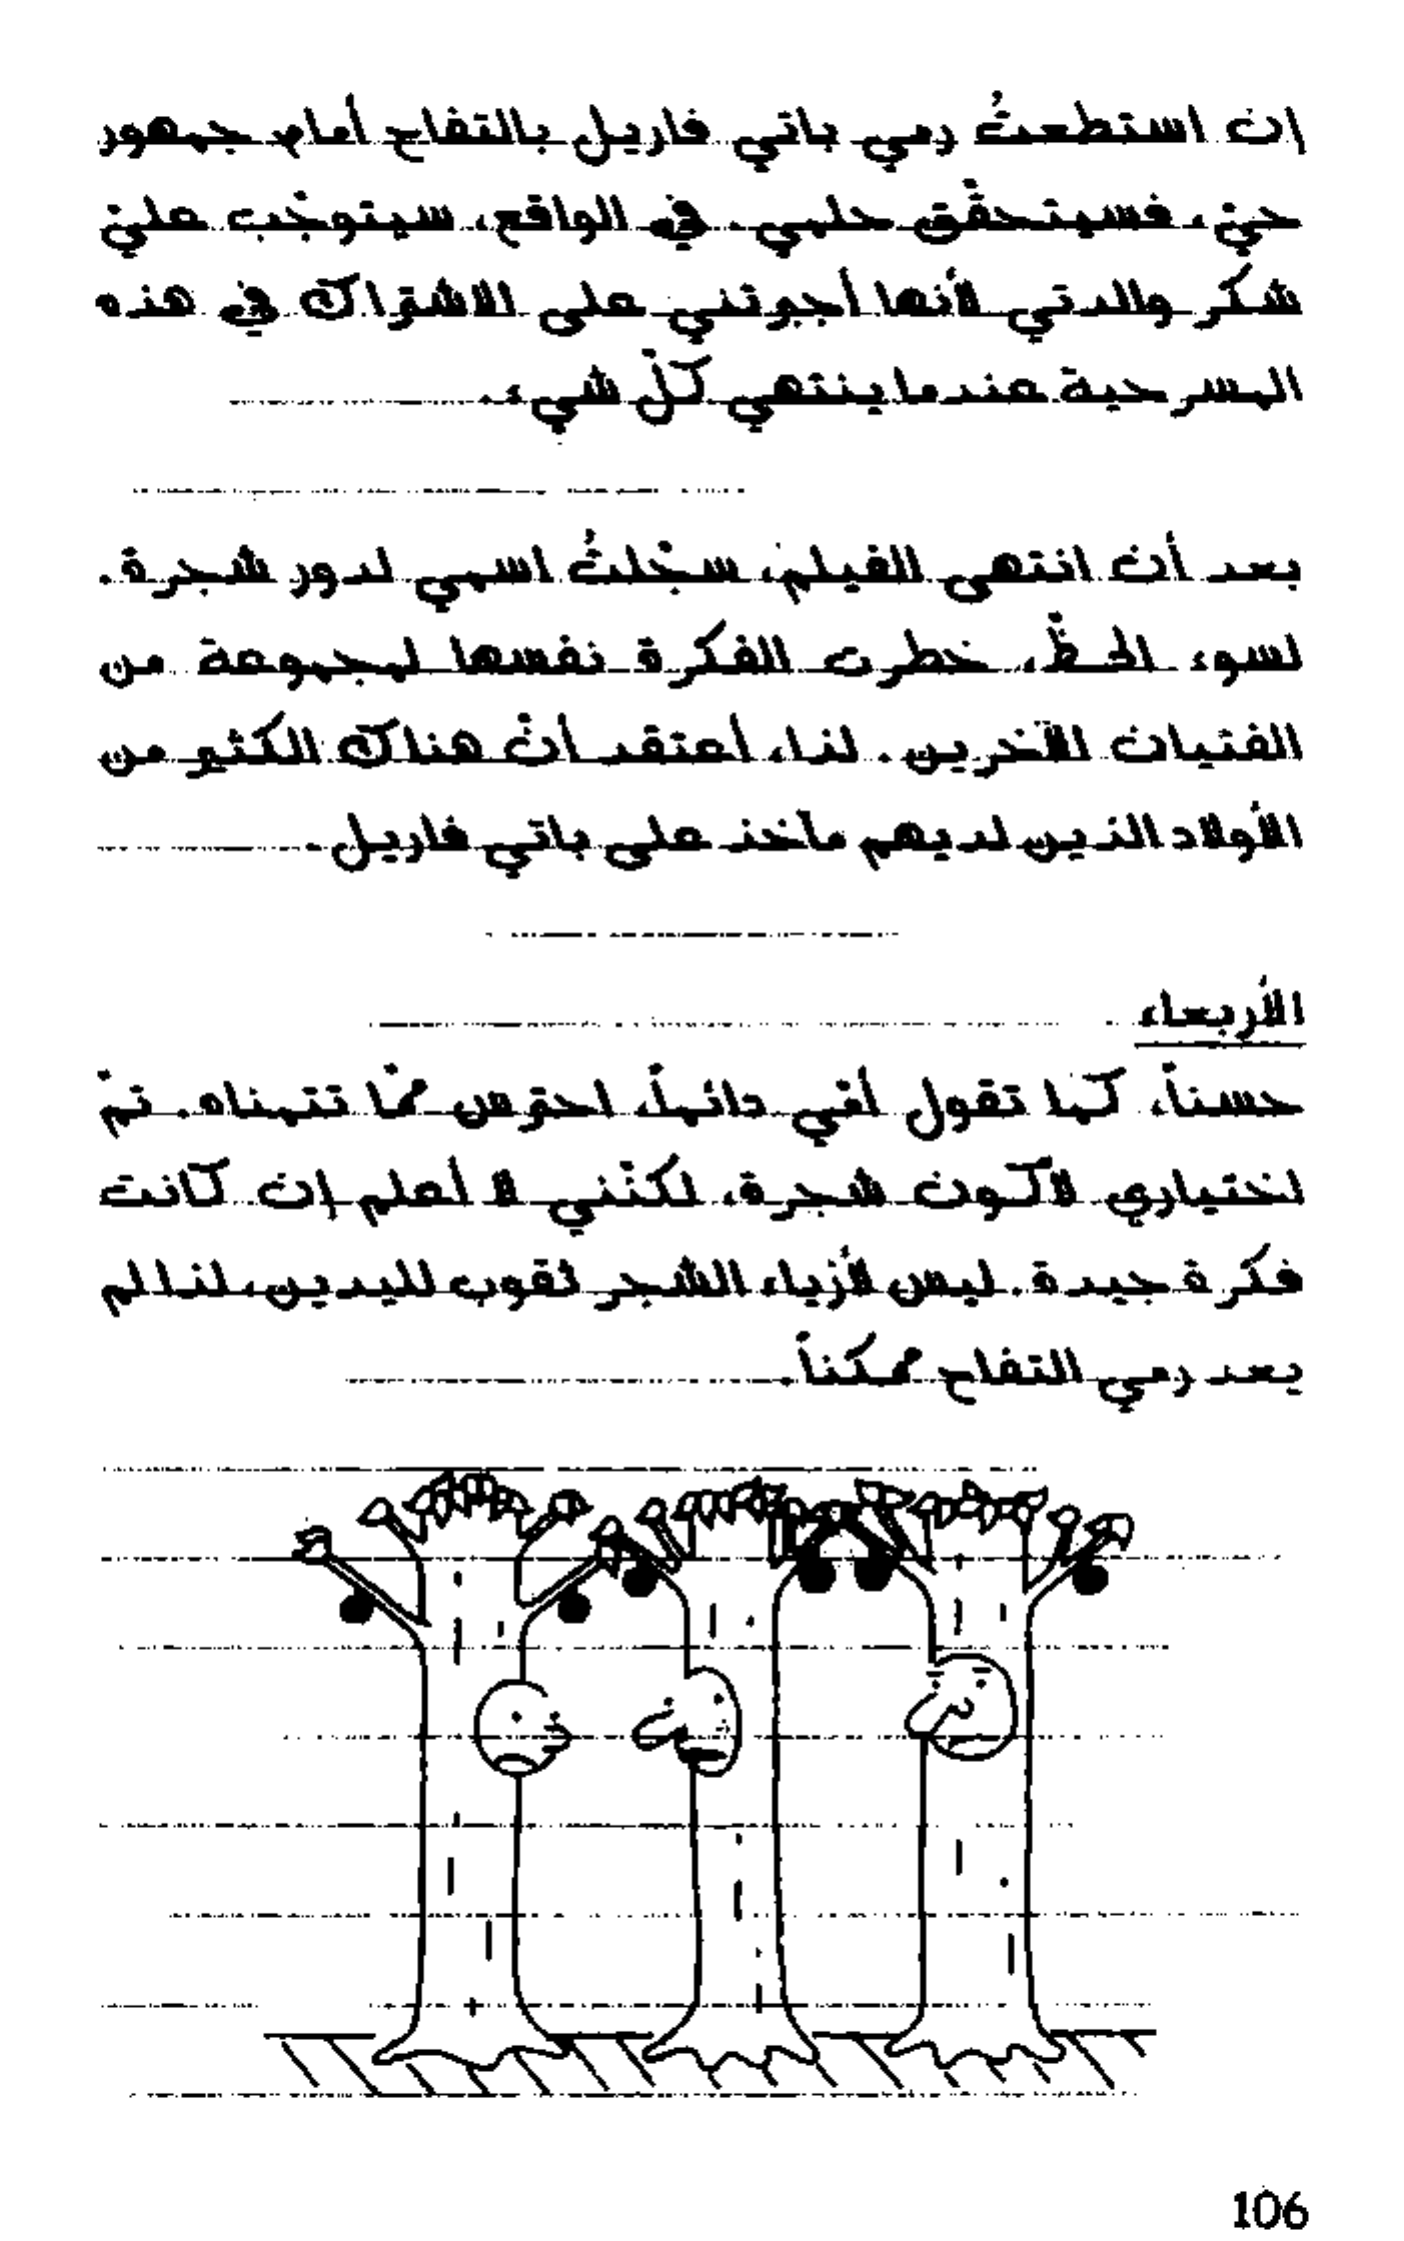 إن استطعتُ رمي باتي فاريل بالتفاح أمام جمهور
حيّ، فسيتحقّق حلمي. في الواقع، سيتوجّب عليّ
شكر والدتي لأنها أجبرتني على الاشتراك في هذه
المسرحية عندما ينتهي كلّ شيء.
بعد أن انتهى الفيلم، سجّلتُ اسمي لدور شجرة.
لسوء الحظّ، خطرت الفكرة نفسها لمجموعة من
الفتيان الآخرين. لذا، أعتقد أنّ هناك الكثير من
الأولاد الذين لديهم مآخذ على باتي فاريل.
الأربعاء
حسناً، كما تقول أمّي دائماً، احترس ممّا تتمناه. تمّ
اختياري لأكون شجرة، لكنّني لا أعلم إن كانت
فكرة جيدة. ليس لأزياء الشجر ثقوب لليدين، لذا لم
يعد رمي التفاح ممكناً.
106